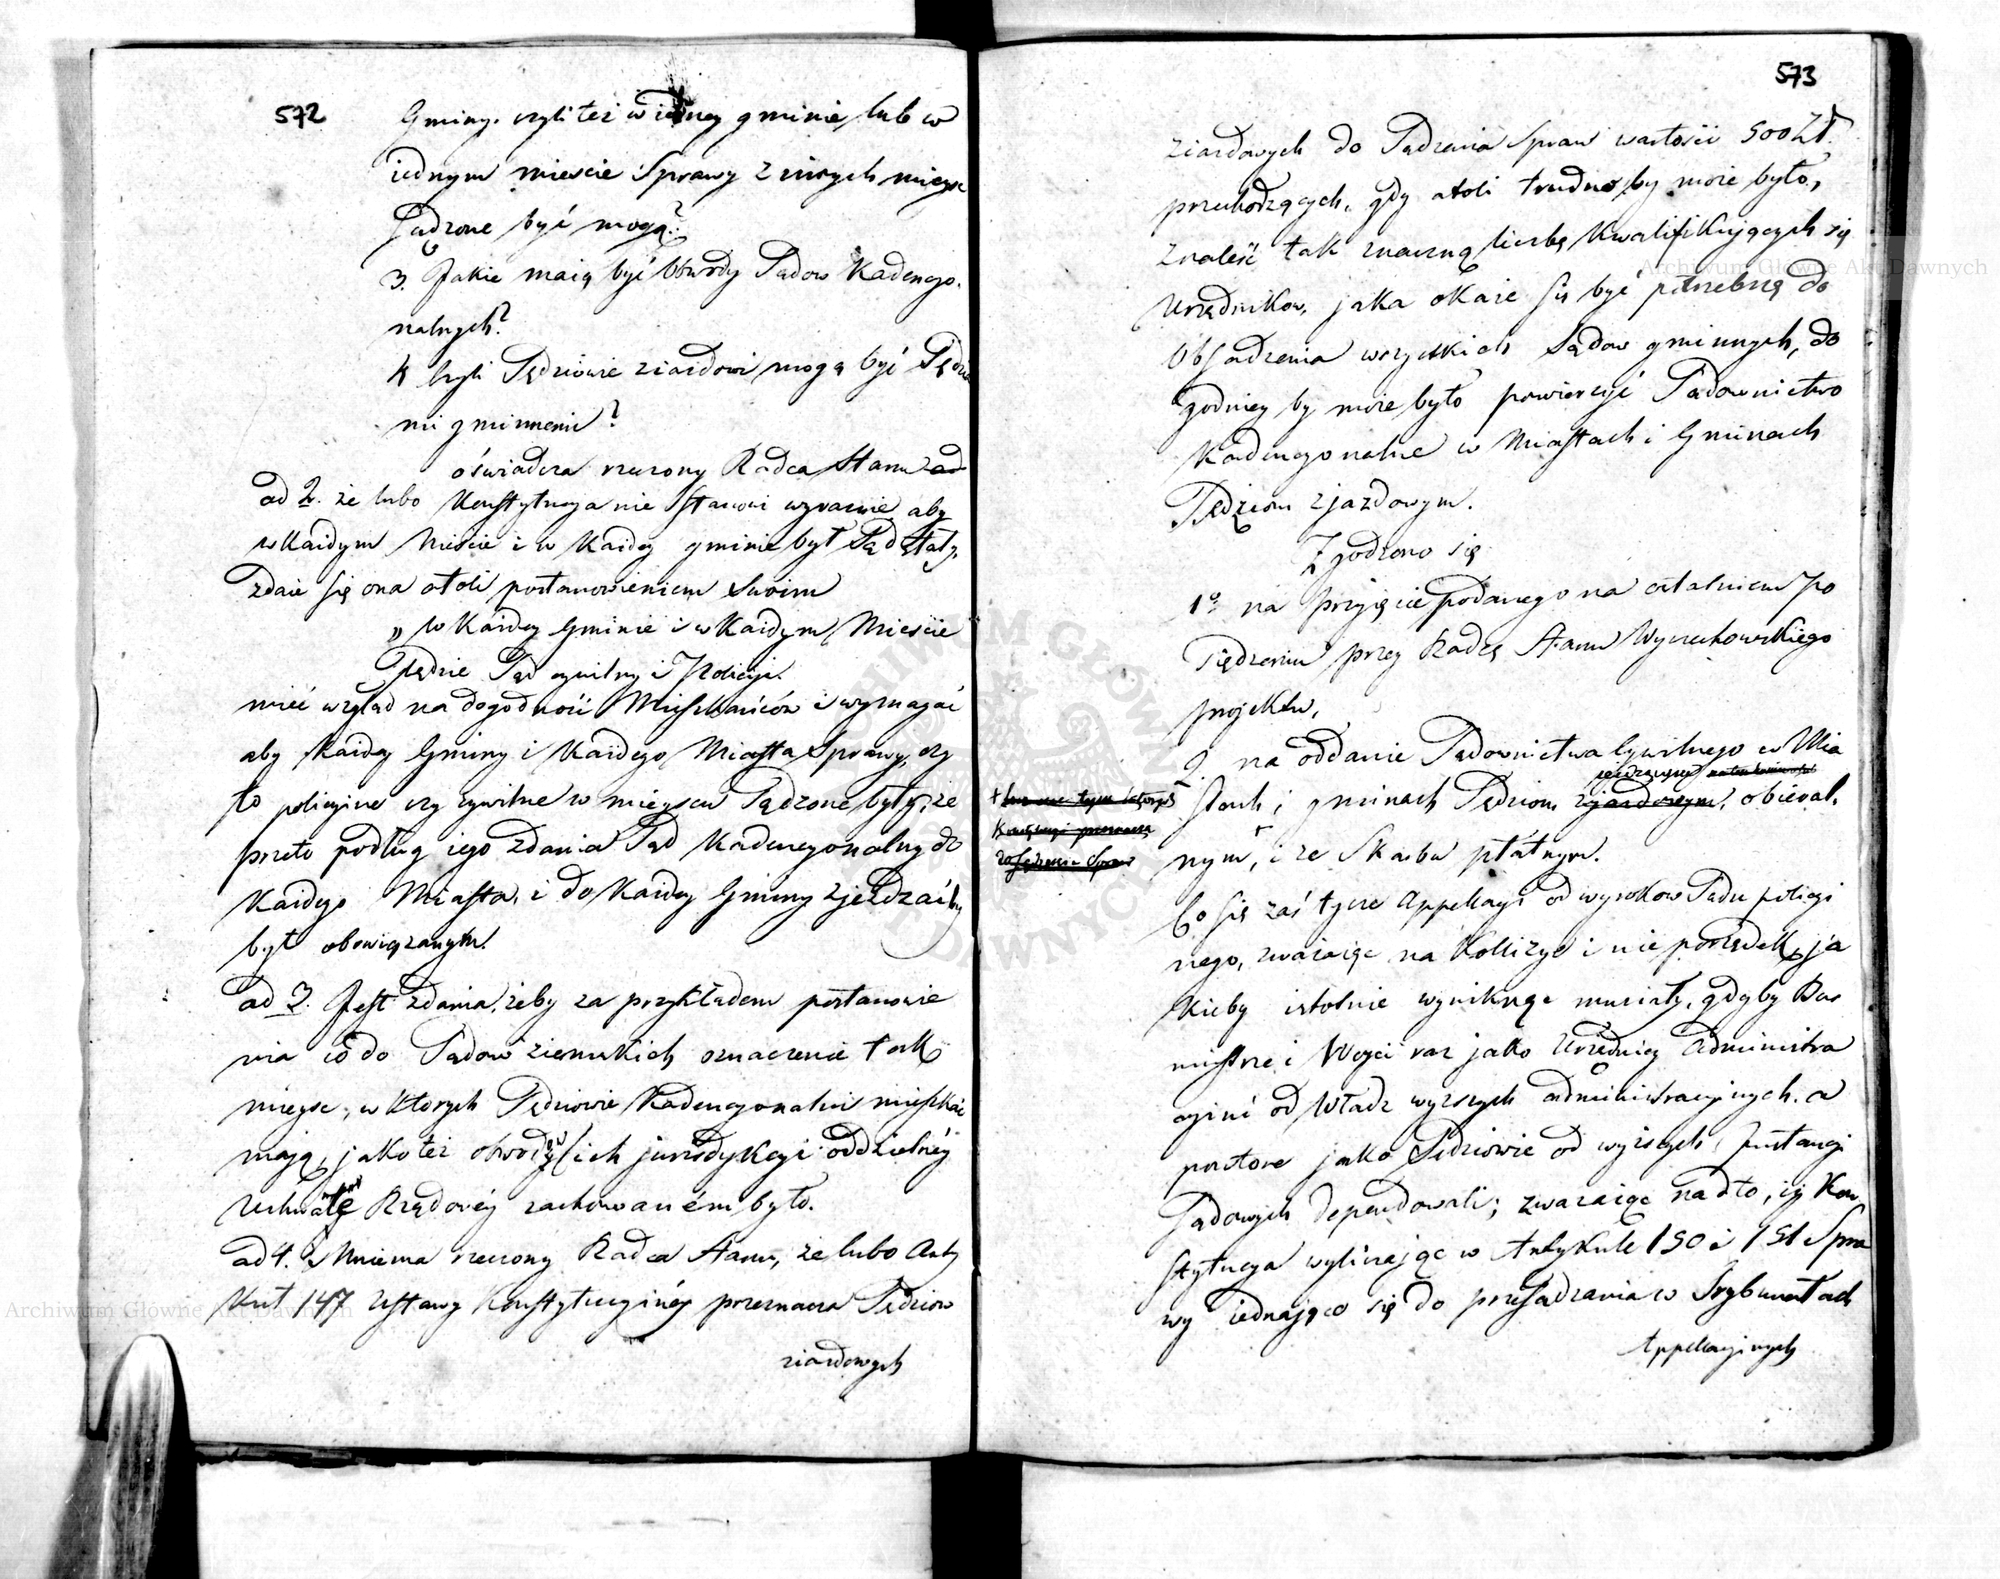 572
Gminy. czyli też w iedney gminie lub w
iednym mieście Sprawy z innych mieysc
sądzone być mogą?
3. Jakie maią być Obwody Sądow Kadencyo-
nalnych?
4 Czyli Sędziowie ziazdowi mogą być Sędzia
mi gminnemi?
oświadcza rzeczony Radca Stanu ad
ad 2. że lubo Konstytucya nie stanowi wyraźnie aby
w każdym Mieście i w każdey gminie był Sąd stały,
zdaie się ona atoli postanowieniem swoim
„w Każdey Gminie i w Każdym Mieście
będzie Sąd cywilny i Policyi.
mieć wzgląd na dogodność Mieszkańców i wymagać
aby każdey Gminy i Każdego Miasta Sprawy, czy
to policyine czy cywilne w mieyscu sądzone były, że
przeto podług iego zdania Sąd Kadencyonalny do
Każdego Miasta, i do Każdey Gminy zjeżdzać by
był obowiązanym.
ad 3. Jest zdania, żeby za przykładem postanowie
nia co do Sądow ziemskich oznaczenie tak
mieysc, w ktorych Sędziowie Kadencyonalni mieszkać
mają, jako też obwodow ich jurisdykcyi oddzielnéy
uchwale Rządowéy zachowaném było.
ad 4. Mniema rzeczony Radca Stanu, że lubo Arty
kuł 147 Ustawy Konstytucyinéy przeznacza Sędziow
ziazdowych
573
ziazdowych do Sądzenia Spraw wartości 500 Zł.
przechodzących, gdy atoli trudno by może było,
znaleść tak znaczną liczbę Kwalifikujących się
Urzędnikow, jaka okaże się być potrzebną do
Obsadzenia wszystkich Sądow gminnych, do
godniey by może było powierzyć Sądownictwo
Kadencyonalne w Miastach i Gminach
Sędziom zjazdowym.
Zgodzono się
1o na przyięcie podanego na ostatniem Po
siedzeniu przez Radcę Stanu Wyczechowskiego
projektu,
2. na oddanie Sądownictwa Cywilnego w Mia
stach i gminach Sędziom zjazdowym, obieral-
nym, i ze Skarbu płatnym.
Co się zaś tycze Appellacyi od wyrokow Sądu policyi
nego, zważaiąc na Kollizye i nie porządek, ja
kieby istotnie wyniknąć musiały, gdyby Bur
mistrze i Woyci raz jako Urzędnicy administra
cyini od Władz wyższych administracyinych. a
powtore jako Sędziowie od wyższych Instancyi
Sądowych dependowali; zważaiąc nadto, iż Kon-
stytucya wyliczając w Artykule 150 i 151 Spra
wy iedynające się do przesądzania w Trybunałach
Appellacyinych